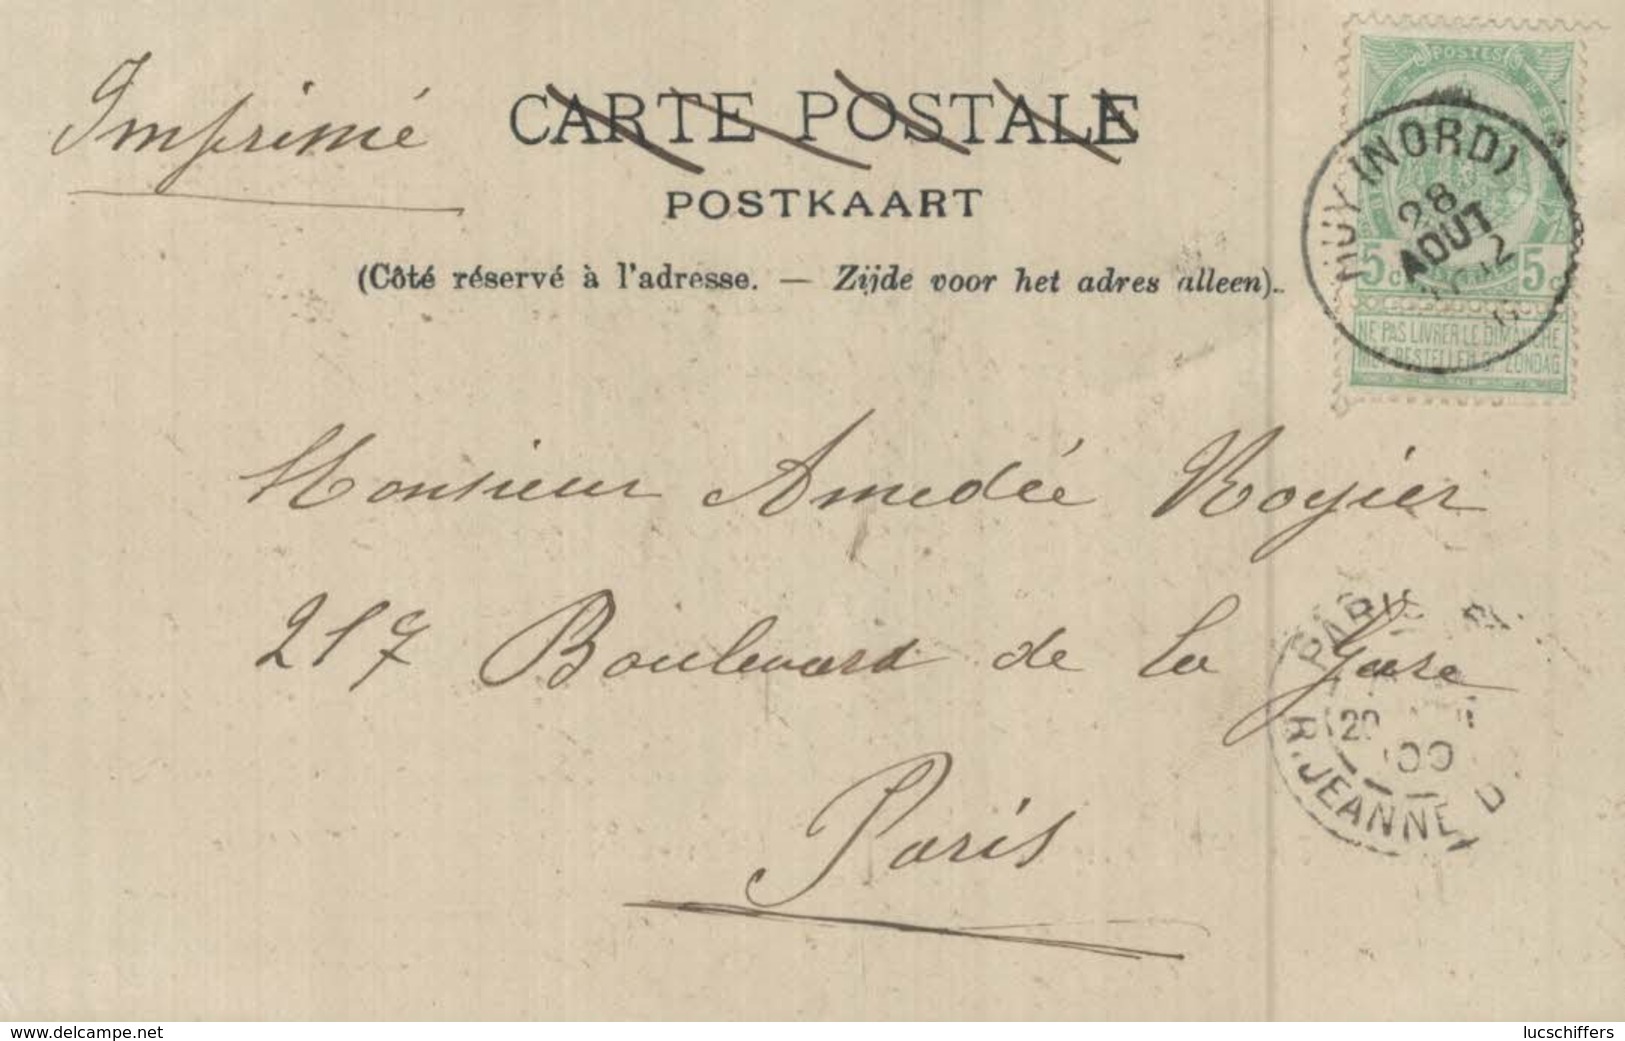 Imprimé
CARTE POSTALE
POSTKAART
(Côté réservé à l'adresse. — Zijde voor het adres alleen).
POSTES
HUY (NORD)
28
AOUT
5c 5c
NE PAS LIVRER LE DIMANCHE
NIET BESTELLEN OP ZONDAG
Monsieur Amedée Rogier
217 Boulevard de la Gare
Paris
PARIS
R. JEANNE D
www.delcampe.net
lucschiffers